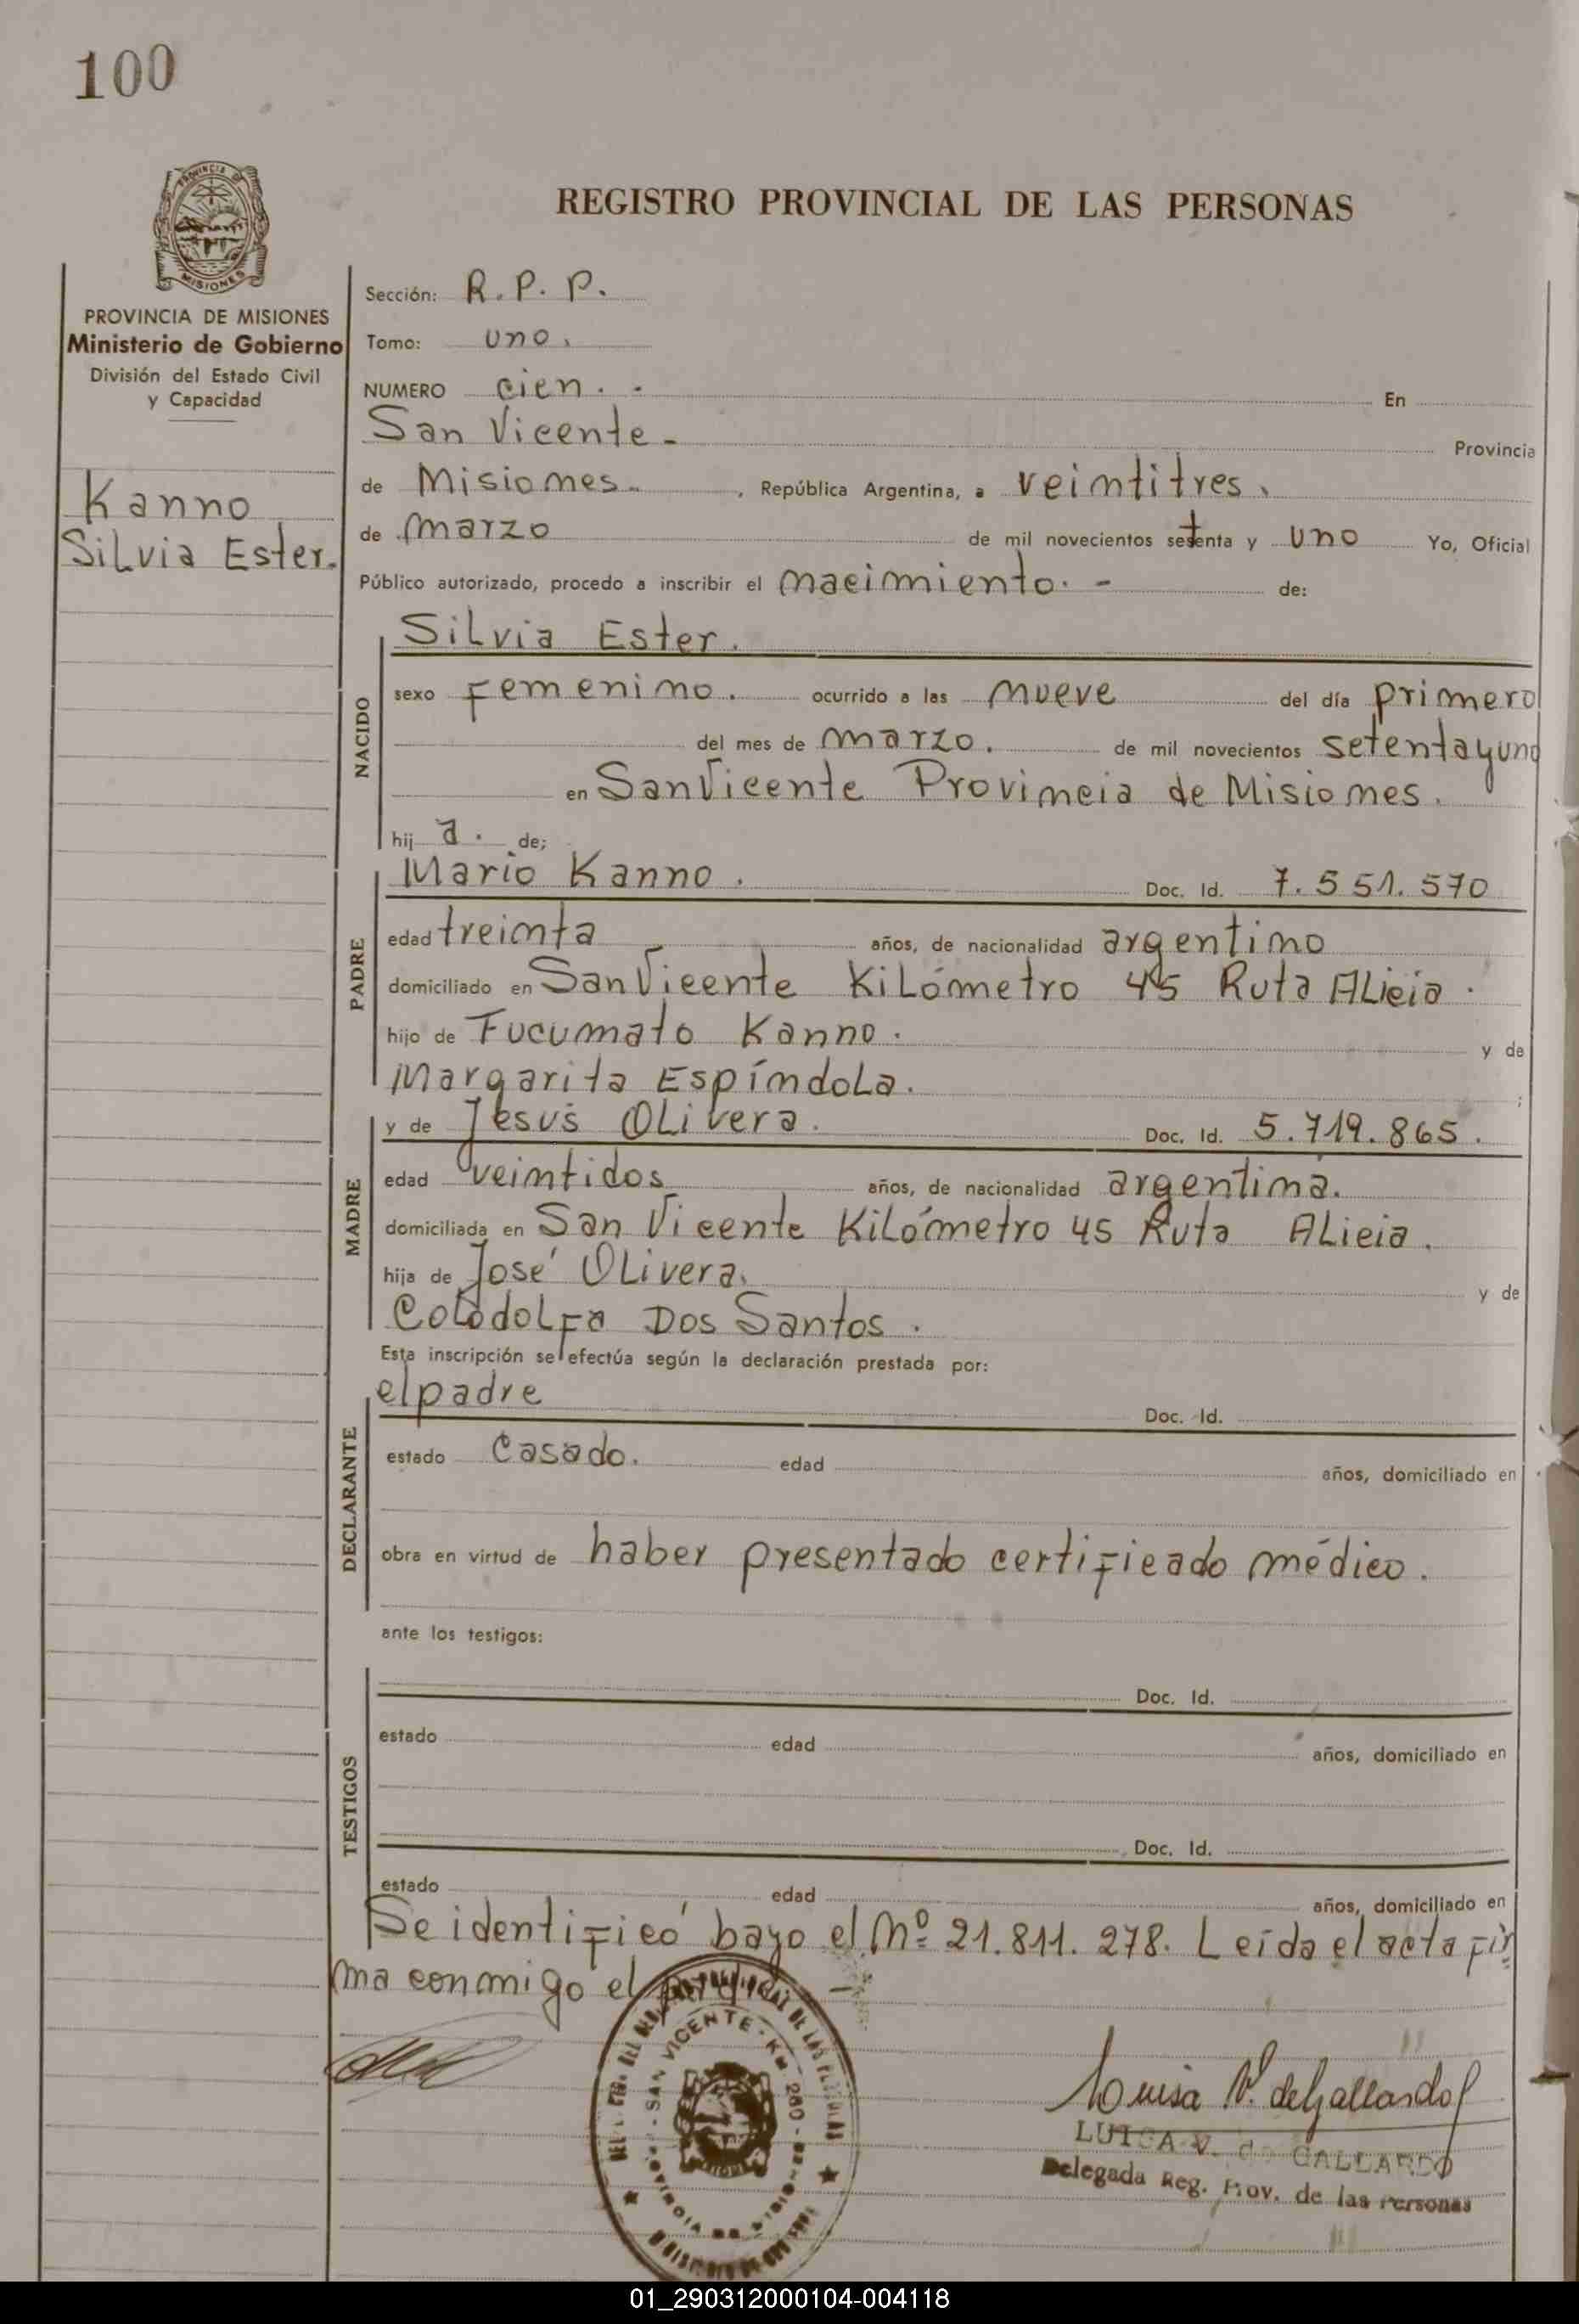 100
PROVINCIA
MISIONES
REGISTRO PROVINCIAL DE LAS PERSONAS
PROVINCIA DE MISIONES
Ministerio de Gobierno
División del Estado Civil
y Capacidad
Kanno
Silvia Ester.
Sección: R. P. P.
Tomo: uno.
NUMERO cien. - En
San Vicente - Provincia
de Misiones. , República Argentina, a veintitres.
de marzo de mil novecientos setenta y uno Yo, Oficial
Público autorizado, procedo a inscribir el nacimiento. - de:
NACIDO
Silvia Ester.
sexo Femenino. ocurrido a las nueve del día primero
del mes de marzo. de mil novecientos setentayuno
en San Vicente Provincia de Misiones.
hij a. de;
PADRE
Mario Kanno. Doc. Id. 7.551.570
edad treinta años, de nacionalidad argentino
domiciliado en San Vicente Kilómetro 45 Ruta Alicia.
hijo de Fucumato Kanno. y de
Margarita Espíndola. ;
MADRE
y de Jesús Olivera. Doc. Id. 5.719.865.
edad veintidos años, de nacionalidad argentina.
domiciliada en San Vicente Kilómetro 45 Ruta Alicia.
hija de José Olivera. y de
Colodolfa Dos Santos.
Esta inscripción se efectúa según la declaración prestada por:
DECLARANTE
el padre Doc. Id.
estado Casado. edad años, domiciliado en
obra en virtud de haber presentado certificado médico.
ante los testigos:
TESTIGOS
Doc. Id.
estado edad años, domiciliado en
Doc. Id.
estado edad años, domiciliado en
Se identificó bajo el Nº 21.811.278. Leída el acta fir
ma conmigo el padre
SAN VICENTE - Km. 280
Luisa V. de Gallardo
LUISA V. de GALLARDO
Delegada Reg. Prov. de las Personas
01_290312000104-004118